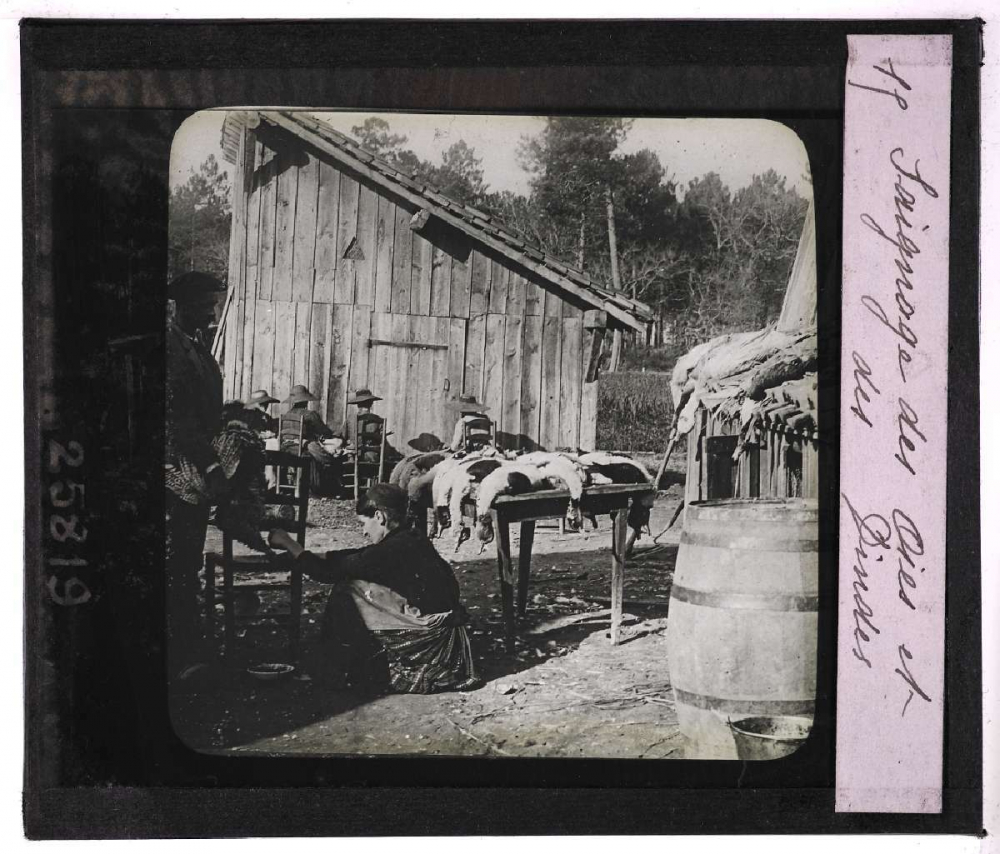 18 Saignage des Oies et
des Dindes
25819